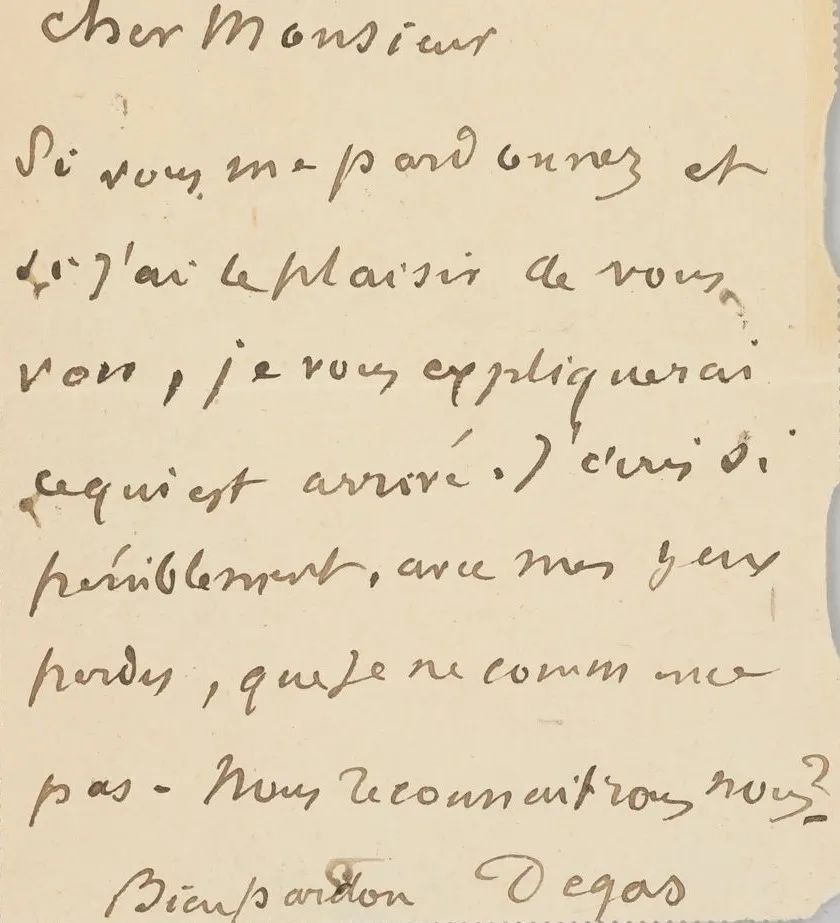 cher Monsieur
Si vous me pardonnez et
si j'ai le plaisir de vous
voir, je vous expliquerai
ce qui est arrivé. J'écris si
péniblement, avec mes yeux
perdus, que je ne commence
pas - Nous reconnaitrons nous?
Bien pardon Degas